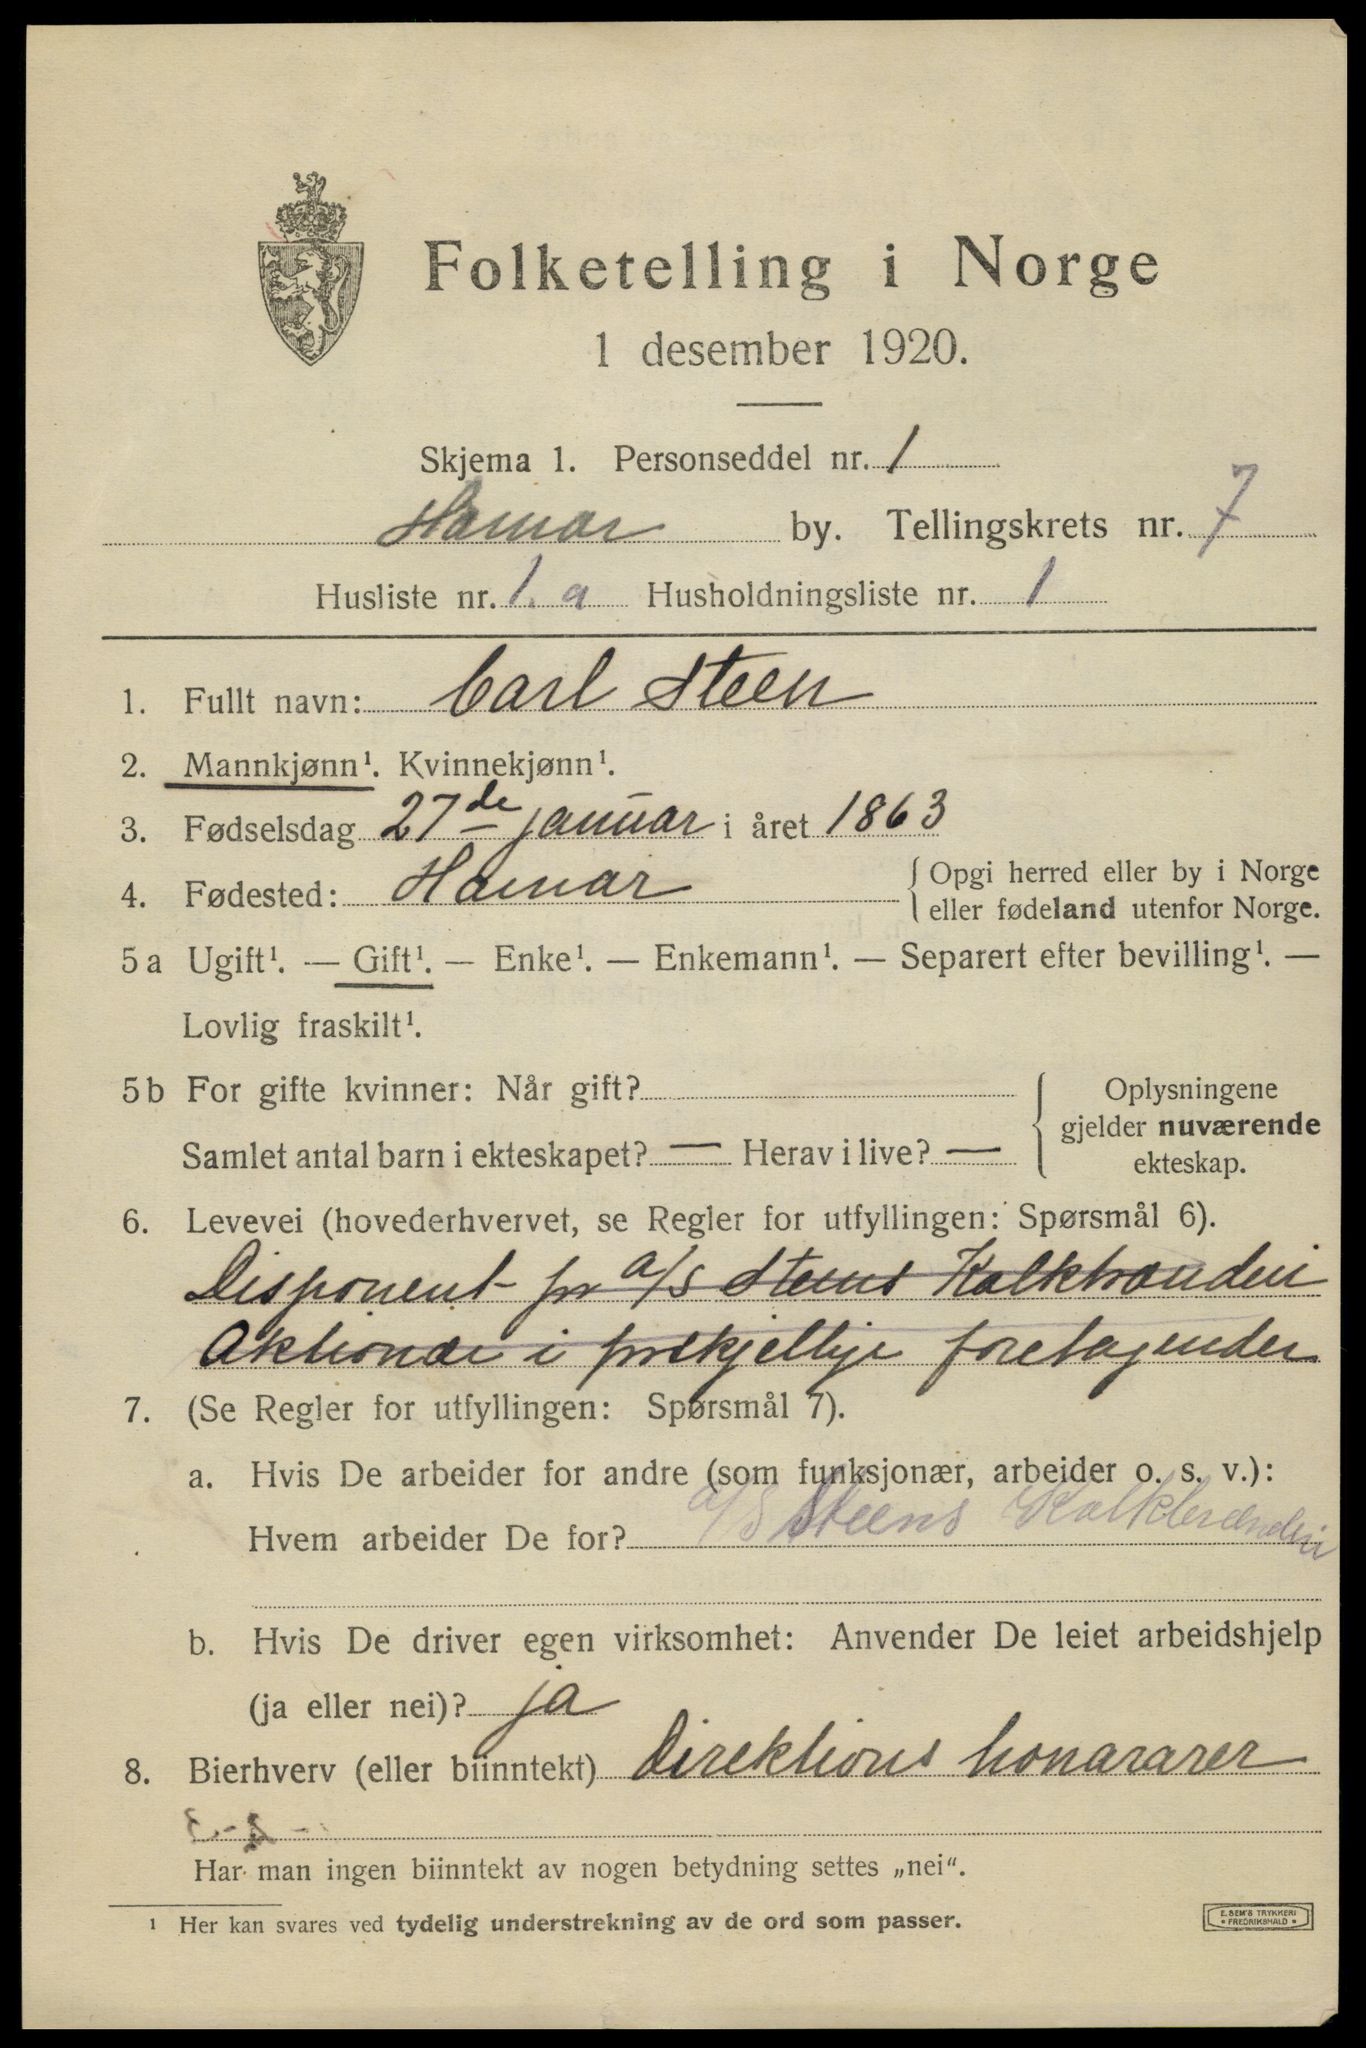 Folketelling i Norge
1 desember 1920.
Skjema 1. Personseddel nr. 1
Hamar by. Tellingskrets nr. 7
Husliste nr. 1. a Husholdningsliste nr. 1
1. Fullt navn: Carl Steen
2. Mannkjønn¹. Kvinnekjønn¹.
3. Fødselsdag 27de januar i året 1863
4. Fødested: Hamar { Opgi herred eller by i Norge
eller fødeland utenfor Norge.
5a Ugift¹. — Gift¹. — Enke¹. — Enkemann¹. — Separert efter bevilling¹. —
Lovlig fraskilt¹.
5b For gifte kvinner: Når gift?
Samlet antal barn i ekteskapet? — Herav i live? —
{ Oplysningene
gjelder nuværende
ekteskap.
6. Levevei (hovederhvervet, se Regler for utfyllingen: Spørsmål 6).
Disponent for a/s Steens Kalkbrænderi
Aktionær i forskjellige foretagender
7. (Se Regler for utfyllingen: Spørsmål 7).
a. Hvis De arbeider for andre (som funksjonær, arbeider o. s. v.):
Hvem arbeider De for? a/s Steens Kalkbrænderi
b. Hvis De driver egen virksomhet: Anvender De leiet arbeidshjelp
(ja eller nei)? ja
8. Bierhverv (eller biinntekt) Direktions honorarer
Har man ingen biinntekt av nogen betydning settes „nei".
¹ Her kan svares ved tydelig understrekning av de ord som passer.
E. SEM'S TRYKKERI
• FREDRIKSHALD •